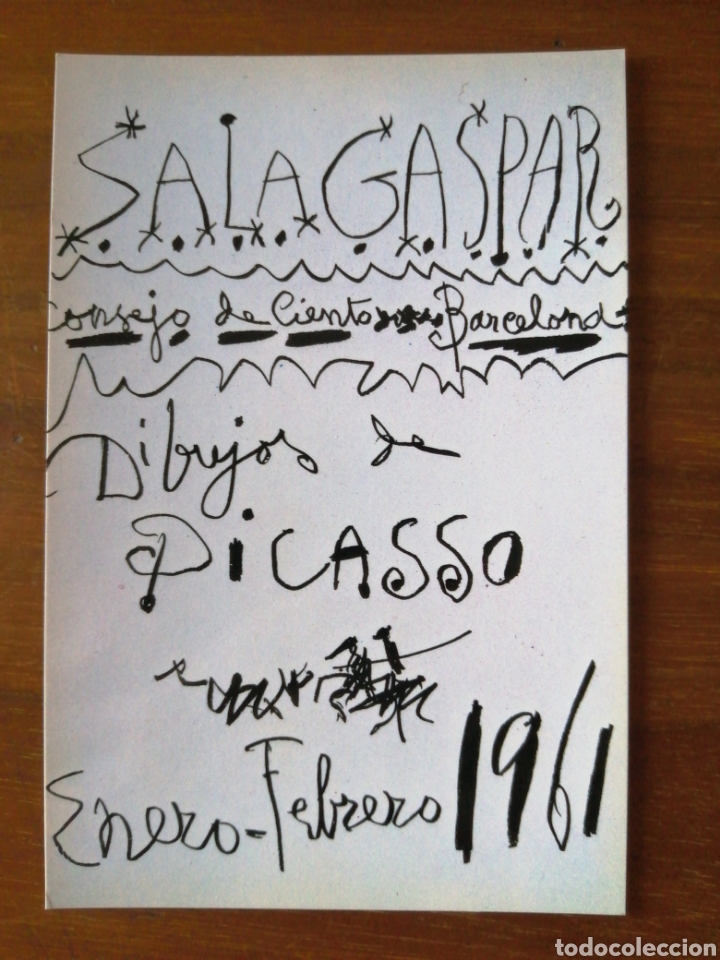 SALA GASPAR
Consejo de Ciento Barcelona
Dibujos de
PiCASSO
Enero-Febrero 1961
todocoleccion